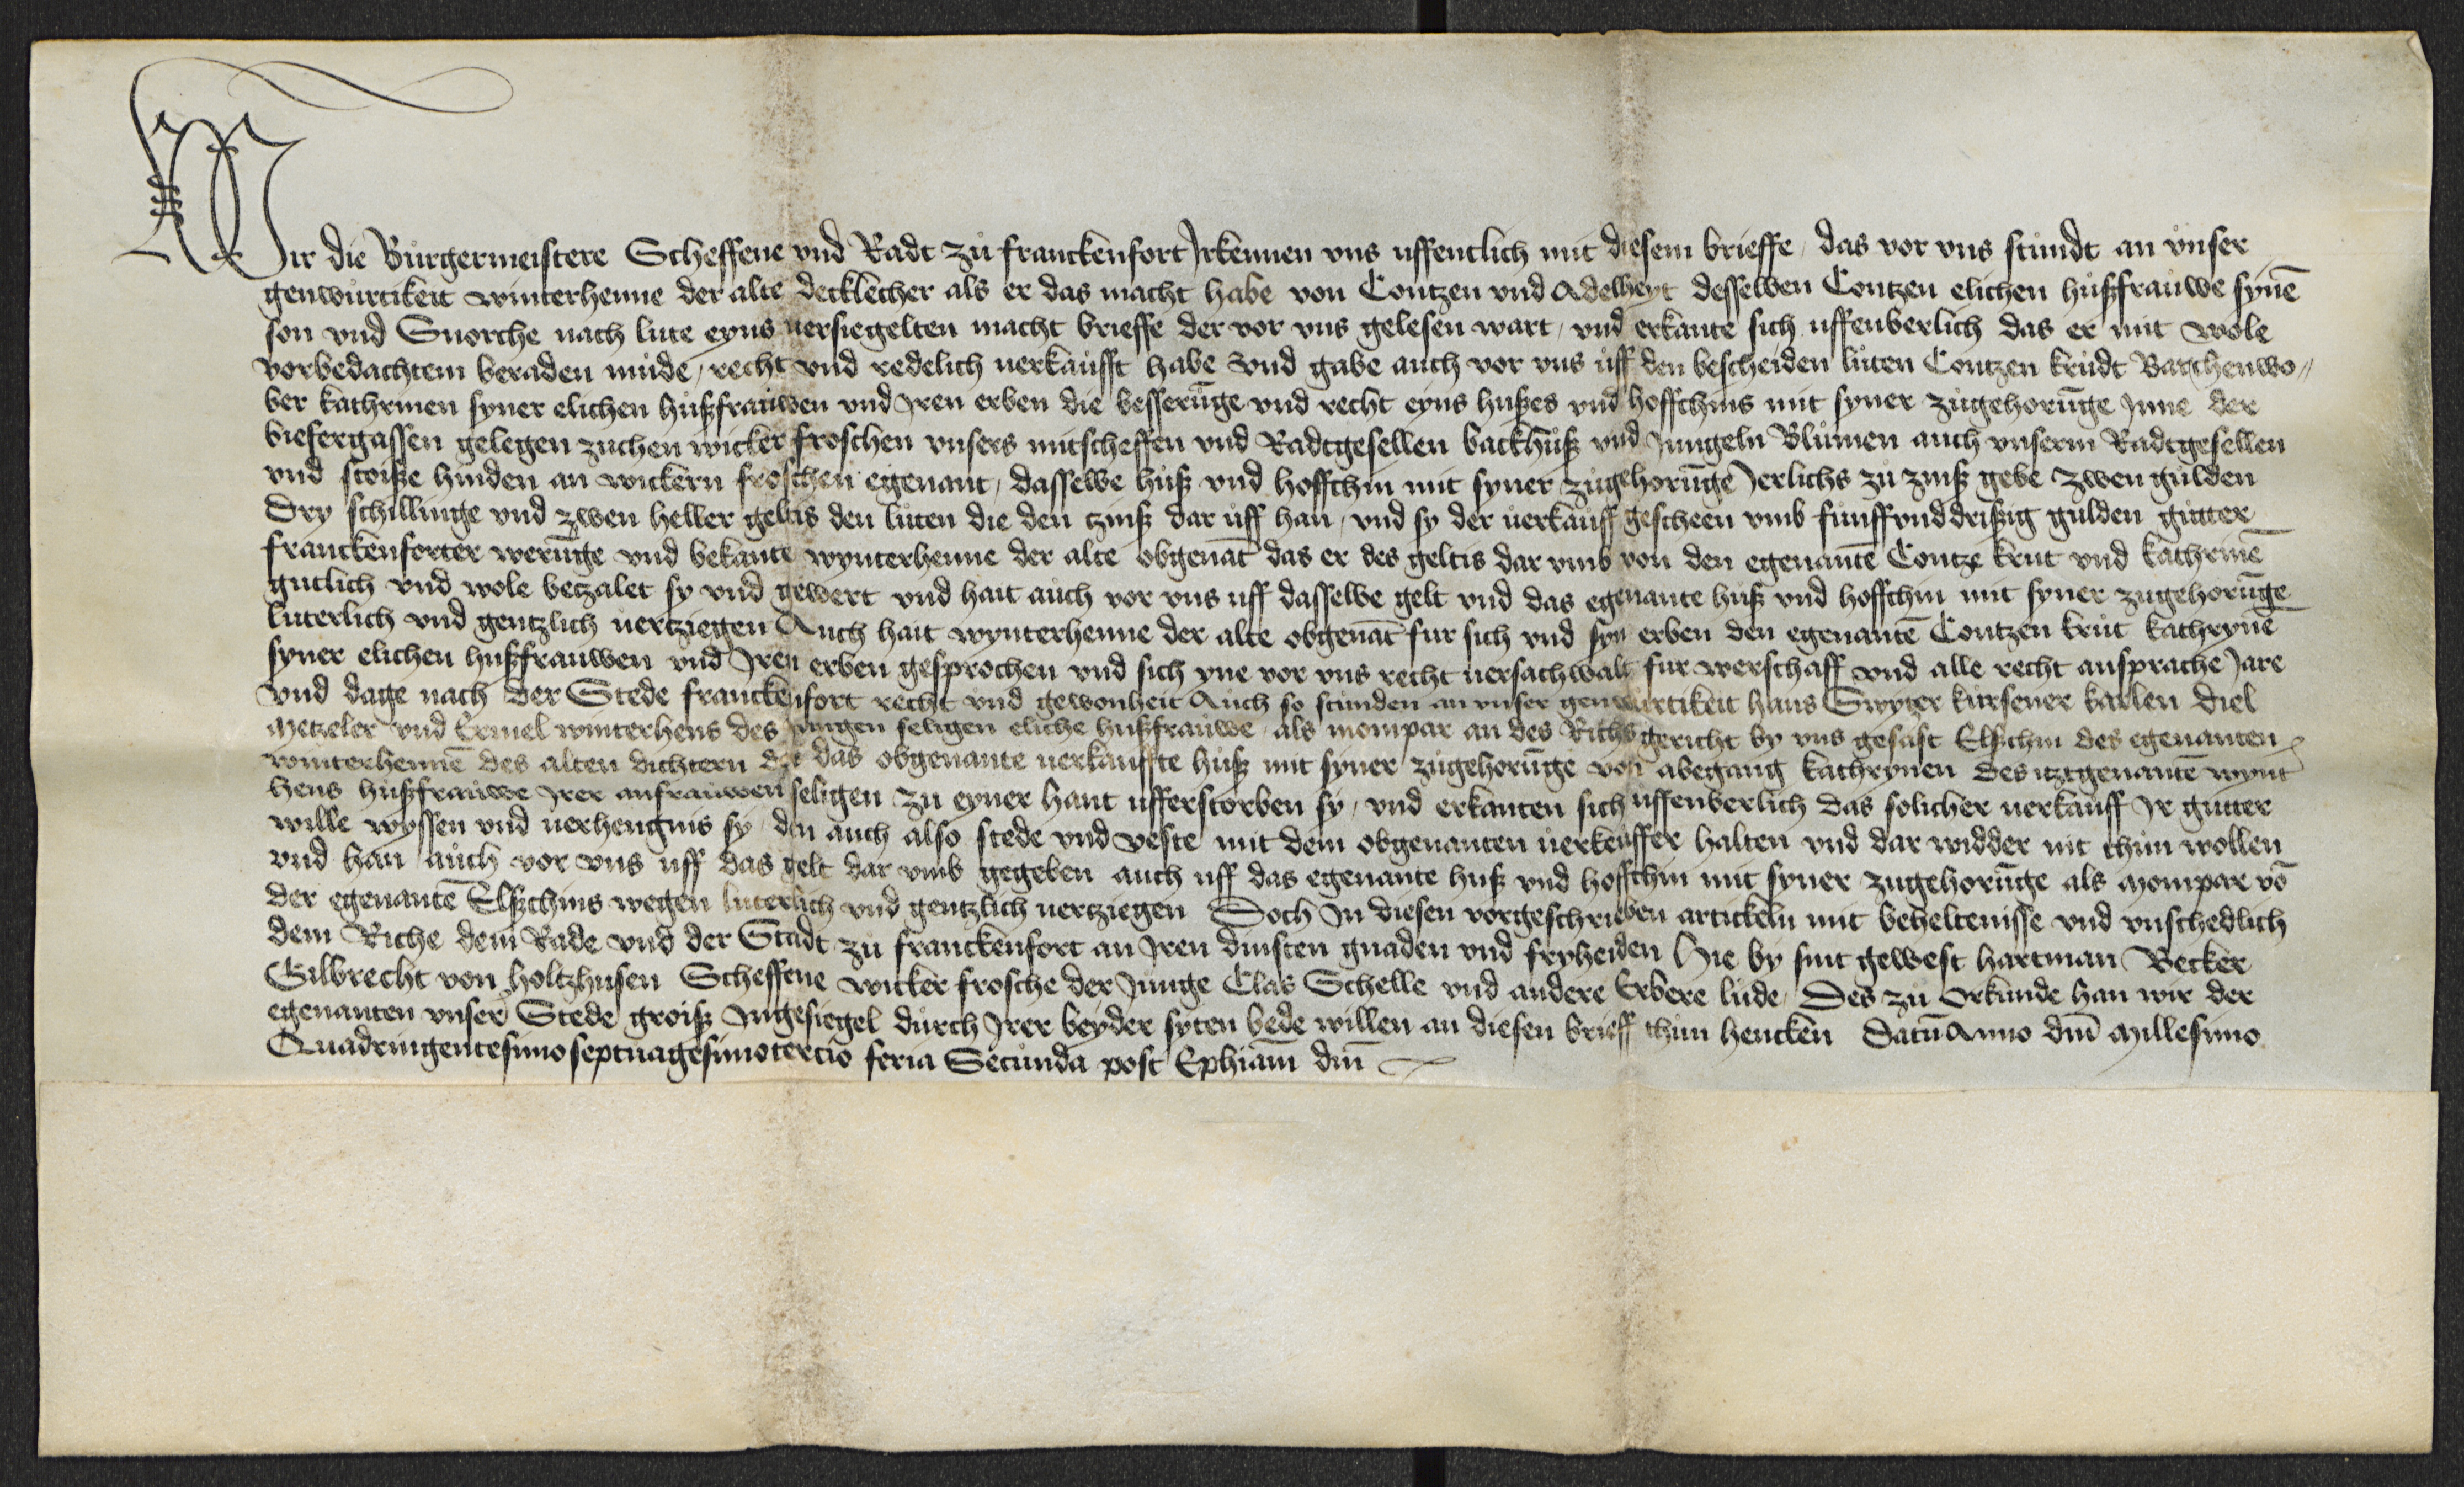 Wir die Burgermeistere Scheffene vnd Radt zů franckenfort Irkennen vns uffentlich mit diesem brieffe / das vor vns stůndt an vnser
genwurtikeit winterhenne der alte decklecher als er das macht habe von Contzen vnd Adelheyt desselben Contzen elichen hußfrauwe synē
son vnd Snorche nach lute eyns uersiegelten macht brieffe der vor vns gelesen wart / vnd erkante sich uffenberlich das er mit wole
vorbedachtem beraden můde / recht vnd redelich uerkaufft habe vnd gabe auch vor vns uff den bescheiden luten Contzen krudt Barchenwo〃
ber kathrinen syner elichen hußfrauwen vnd Iren erben die besserūge vnd recht eyns hußes vnd hoffchins mit syner zugehorūge Inne der
biefergassen gelegen zuchen wicker froschen vnsers mitscheffen vnd Radtgesellen backhuß vnd Jungeln Blumen auch vnserm Radtgesellen
vnd stoiße hinden an wickern froschen egenant / dasselbe huß vnd hoffchin mit syner zugehorūge Jerlichs zu zinß gebe zwen gulden
Dry schillinge vnd zwen heller geltis den luten die den tzinß dar uff han / vnd sy der uerkauff gescheen vmb funffvnddrißig gulden gutter
franckenforter werūge vnd bekante wynterhenne der alte obgenāt das er des geltis dar vmb von den egenantē Contze krut vnd kathrinē
gutlich vnd wole betzalet sy vnd gewert vnd hait auch vor vns uff dasselbe gelt vnd das egenante huß vnd hoffchin mit syner zugehorūge
luterlich vnd gentzlich uertziegen Auch hait wynterhenne der alte obgenāt fur sich vnd syn erben den egenantē Contzen krut kathrynē
syner elichen hußfrauwen vnd Iren erben gesprochen vnd sich yne vor vns recht uersachwalt fur werschaff vnd alle recht ansprache Jare
vnd dage nach der Stede franckenfort recht vnd gewonheit Auch so stunden an vnser genwurtikeit hans Swyger kursener karlen diel
Metzeler vnd Ermel winterhens des jungen seligen eliche hußfrauwe / als mompar an des Richs gericht by vns gesast Elschin des egenanten
winterhennē des alten dichtern der das obgenante uerkauffte huß mit syner zugehorūge von abegang kathrynen des itztgenantē wynt
hens hußfrauwe Irer anfrauwen seligen zu eyner hant ufferstorben sy / vnd erkanten sich uffenberlich das solicher uerkauff Ir gutter
wille wyssen vnd uerhengnis sy / den auch also stede vnd veste mit dem obgenanten uerkeuffer halten vnd dar widder nit thun wollen
vnd han auch vor vns uff das gelt dar vmb gegeben auch uff das egenante huß vnd hoffchin mit syner zugehorūge als Mompar vō
der egenantē Elßchins wegen luterlich vnd gentzlich uertziegen Doch In diesen vorgeschrieben artickeln mit beheltenisse vnd vnschedlich
dem Riche dem Rade vnd der Stadt zu franckenfort an Iren dinsten gnaden vnd fryheiden Hie by sint gewest hartman Becker
Gilbrecht von holtzhusen Scheffene wicker frosche der Junge Clas Schelle vnd andere Erbere lude / Des zu Orkunde han wir der
egenanten vnser Stede groiß Ingesiegel durch Irer beyder syten bede willen an diesen brieff thun hencken Datū Anno dn̄i Millesimo
Quadringentesimo septuagesimotercio feria Secunda post Ephiām dn̄i